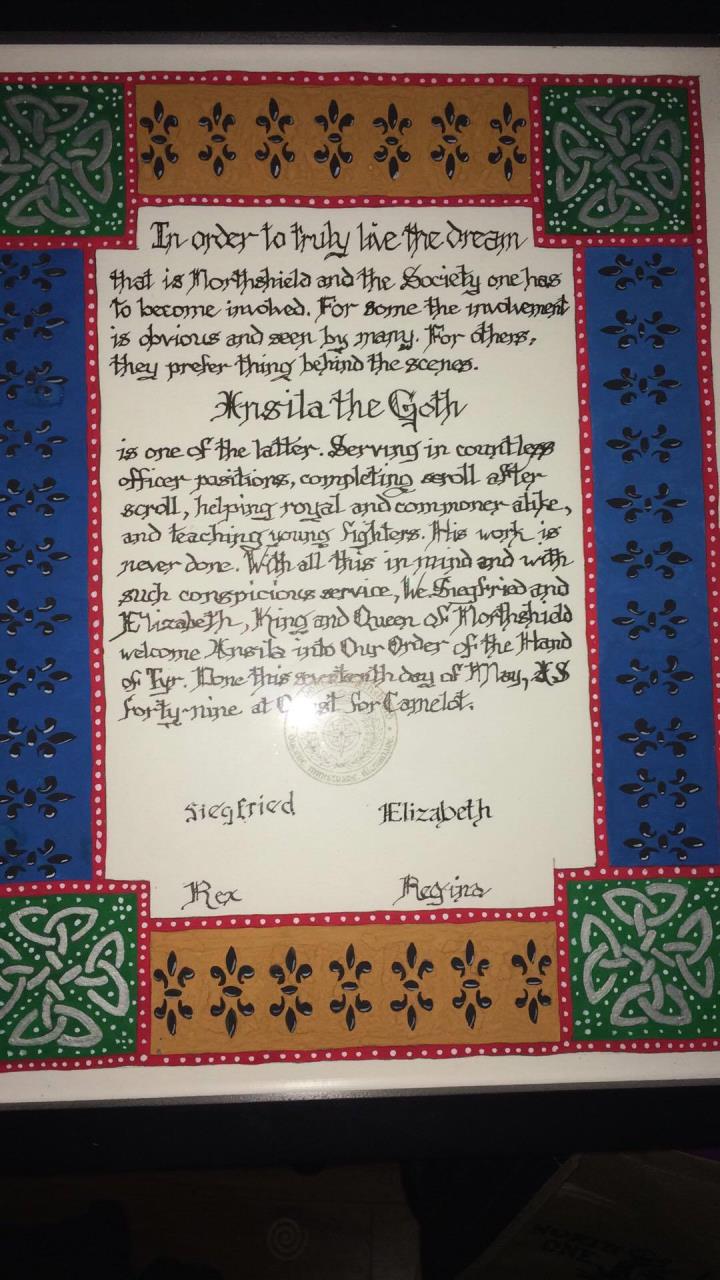 In order to truly live the dream
that is Northshield and the Society one has
to become involved. For some the involvement
is obvious and seen by many. For others,
they prefer thing behind the scenes.
Ansila the Goth
is one of the latter. Serving in countless
officer positions, completing scroll after
scroll, helping royal and commoner alike,
and teaching young fighters. His work is
never done. With all this in mind and with
such conspicious service, We Siegfried and
Elizabeth, King and Queen of Northshield
welcome Ansila into Our Order of the Hand
of Tyr. Done this day of May, AS
forty-nine at for Camelot.
Siegfried Elizabeth
Rex Regina